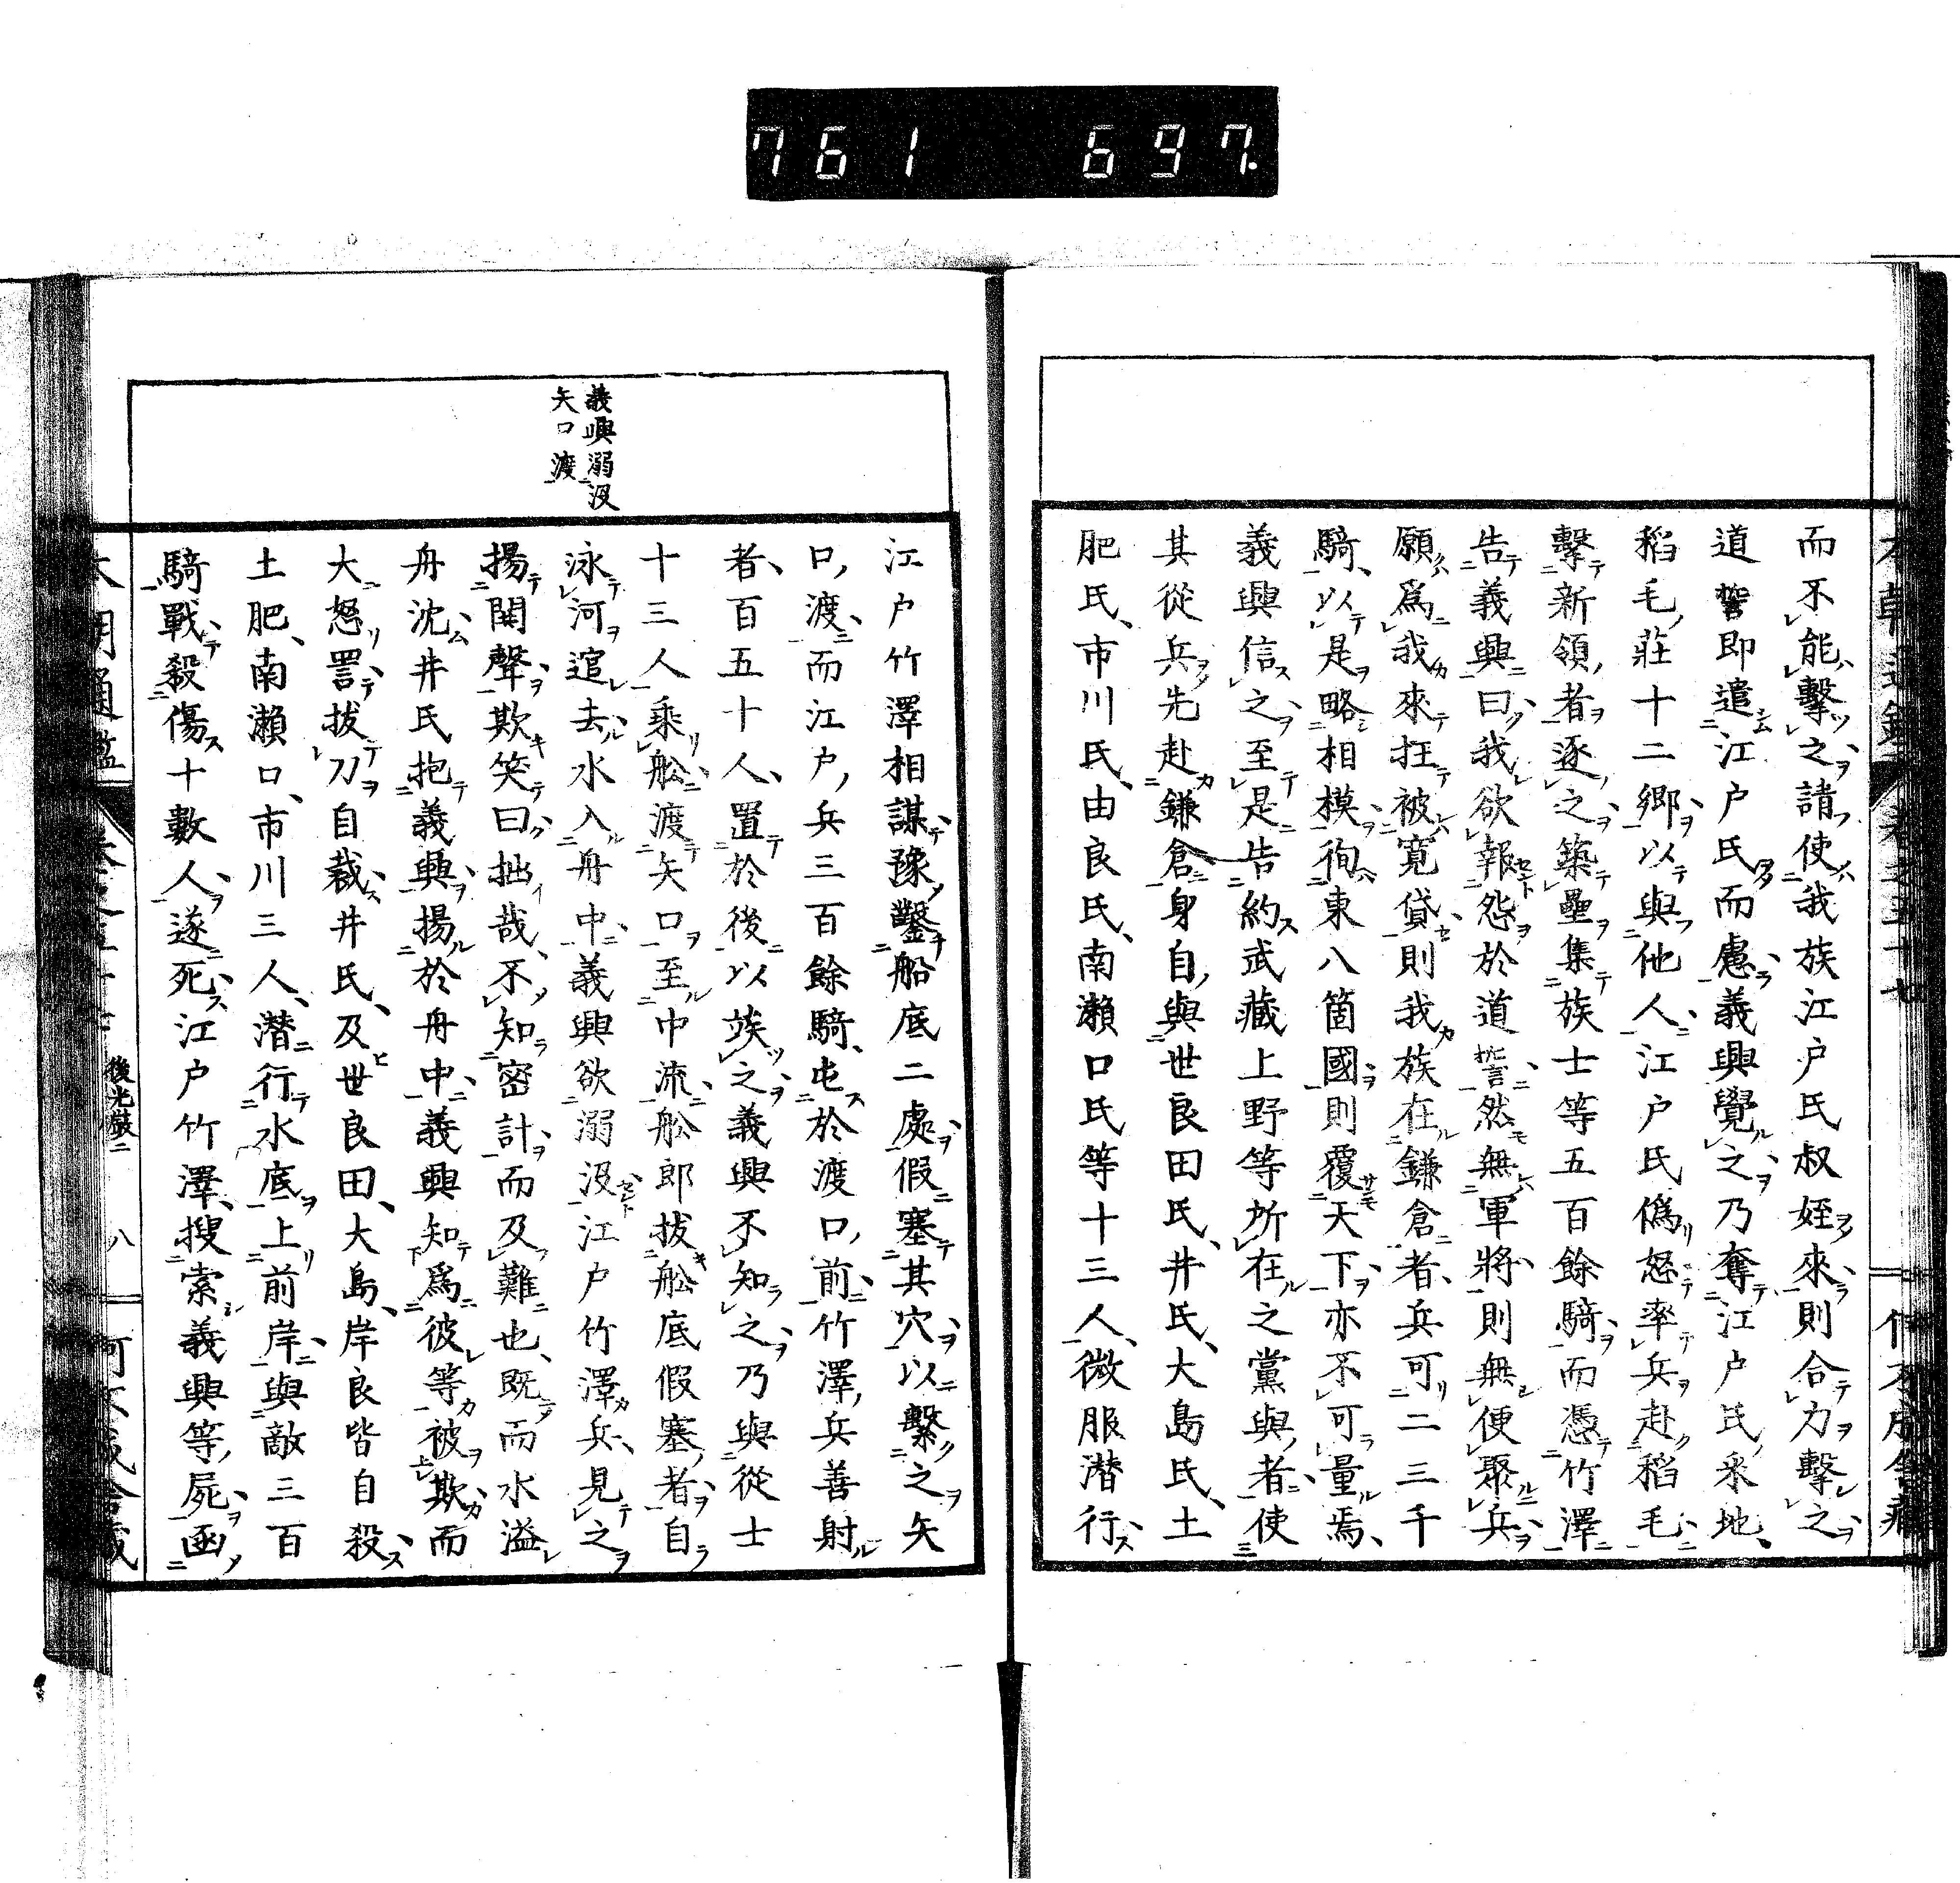 761 697.
而不能擊之請使我族江戶氏叔姪來則合力擊之
道誓即遣江戶氏而慮義興覺之乃奪江戶氏釆地
稻毛莊十二鄉以與他人江戶氏僞怒率兵赴稻毛
擊新領者逐之築壘集族士等五百餘騎而憑竹澤
告義興曰我欲報怨於道誓然無軍將則無便聚兵
願爲我來抂被寬貸則我族在鎌倉者兵可二三千
騎以是略相模徇東八箇國則覆天下亦不可量焉
義興信之至是告約武藏上野等所在之黨與者使
其從兵先赴鎌倉身自與世良田氏井氏大島氏土
肥氏市川氏由良氏南瀨口氏等十三人微服潜行
義興溺没
矢口渡
江戶竹澤相謀豫鑿船底二處假塞其穴以繫之矢
口渡而江戶兵三百餘騎屯於渡口前竹澤兵善射
者百五十人置於後以竢之義興不知之乃與從士
十三人乘舩渡矢口至中流舩郎拔舩底假塞者自
泳河逭去水入舟中義興欲溺没江戶竹澤兵見之
揚鬨聲欺笑曰拙哉不知密計而及難也既而水溢
舟沈井氏抱義興揚於舟中義興知爲彼等被欺而
大怒詈拔刀自裁井氏及世良田大島岸良皆自殺
土肥南瀨口市川三人潜行水底上前岸與敵三百
騎戰殺傷十數人遂死江戶竹澤搜索義興等屍函
後光嚴二 八